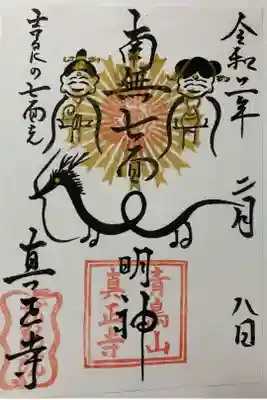 令和二年
二月
八日
南無七面
明神
青島山
真正寺
の七面
真正寺